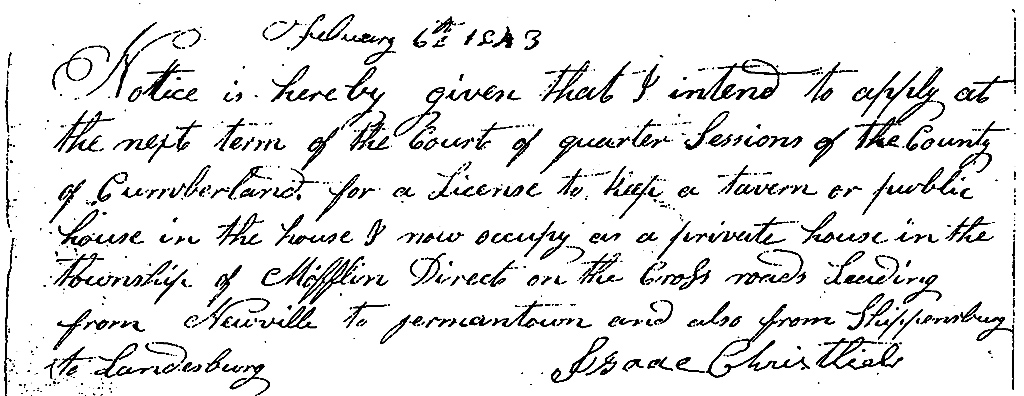 February 6th 1843
Notice is hereby given that I intend to apply at
the next term of the Court of quarter Sessions of the County
of Cumberland. for a License to keep a tavern or public
house in the house I now occupy as a private house in the
township of Mifflin Direct on the Cross roads Leading
from Newville to jermantown and also from Shippensburg
to Landesburg Isaac Christlieb